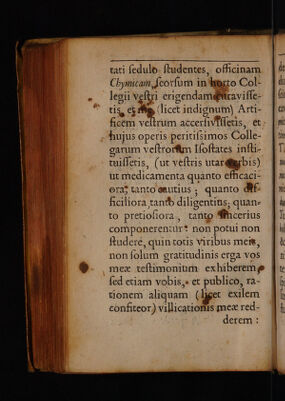 tati ſedulo ſtudentes, officinam
Chymicam ſeorſum in horto Col-
legii veſtri erigendam curaviſſe-
tis, et me (licet indignum) Arti-
ficem veſtrum acceſſiviſſetis, et
hujus operis peritiſſimos Colle-
garum veſtrorum Iſoſtates inſti-
tuiſſetis, (ut veſtris utar verbis)
ut medicamenta quanto efficaci-
ora; tanto cautius; quanto dif-
ficiliora tanto diligentius, quan-
to pretioſiora, tanto ſincerius
componerentur: non potui non
ſtudere, quin totis viribus meis,
non ſolum gratitudinis erga vos
meæ teſtimonium exhiberem,
ſed etiam vobis, et publico, ra-
tionem aliquam (licet exilem
confiteor) villicationis meæ red-
derem: